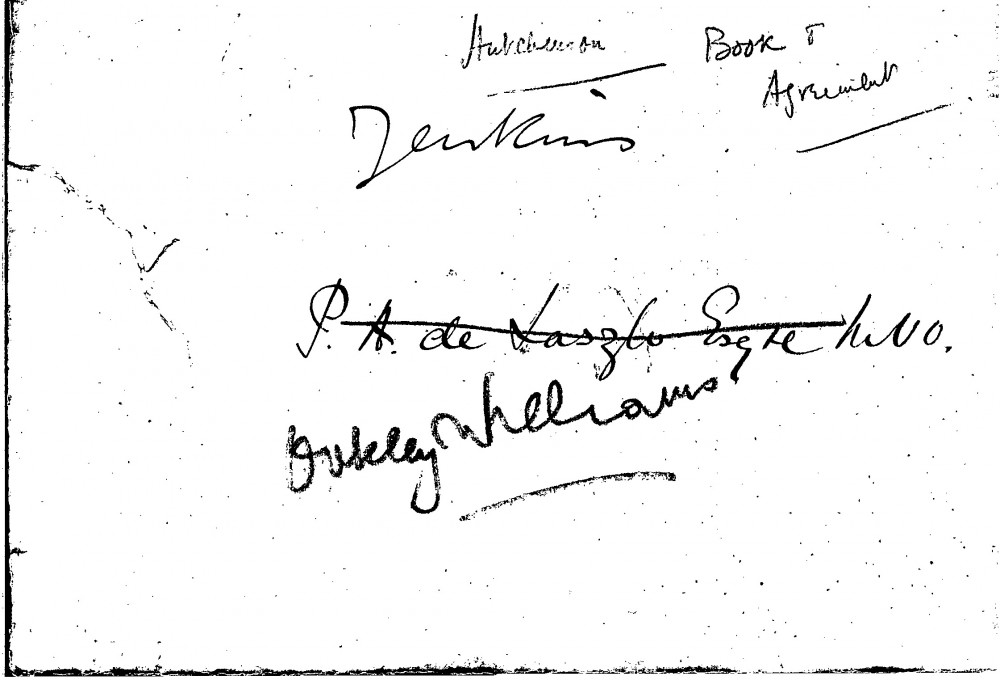 Hutchinson Book &
Agreement
Jenkins
P. A. de Laszlo Esqre M.V.O.
Oakley Williams